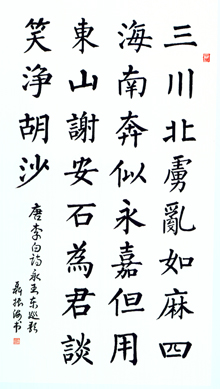 三川北虜亂如麻四
海南奔似永嘉但用
東山謝安石為君談
笑淨胡沙
唐李白诗永王东巡歌